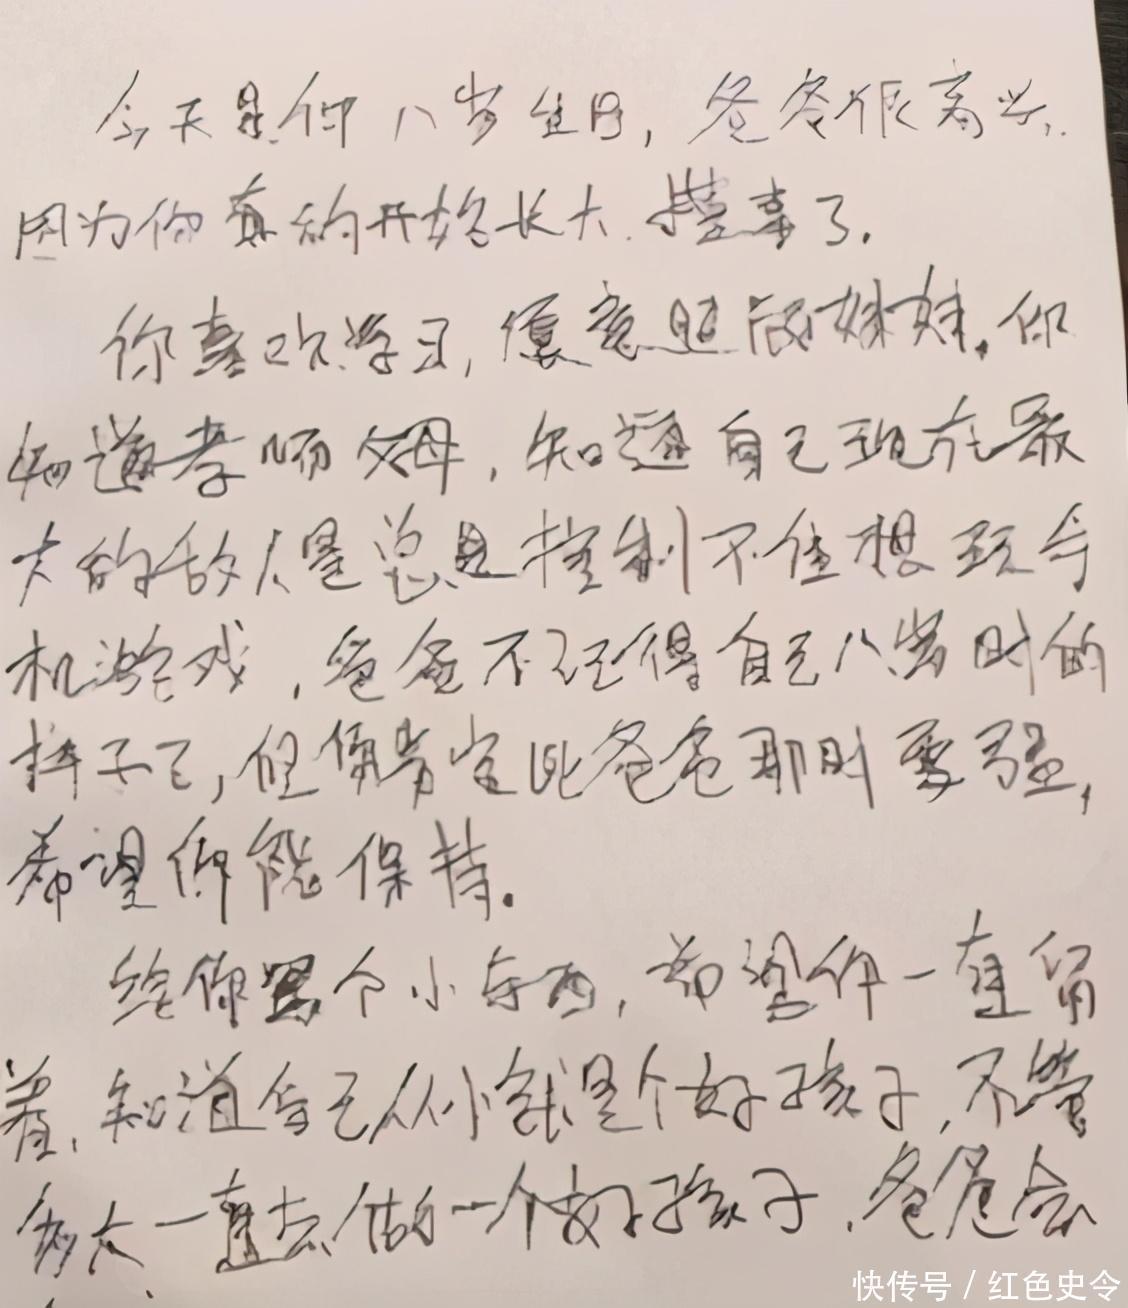 今天是你八岁生日，爸爸很高兴，
因为你真的开始长大、懂事了。
你喜欢学习，愿意照顾妹妹。你
知道孝顺父母，知道自己现在最
大的敌人是总是控制不住想玩手
机游戏，爸爸不记得自己八岁时的
样子了，但肯定比爸爸那时要强，
希望你能保持。
给你写个小东西，希望你一直留
着，知道自己从小就是个好孩子，不管
多大一直去做一个好孩子，爸爸会
快传号 / 红色史令